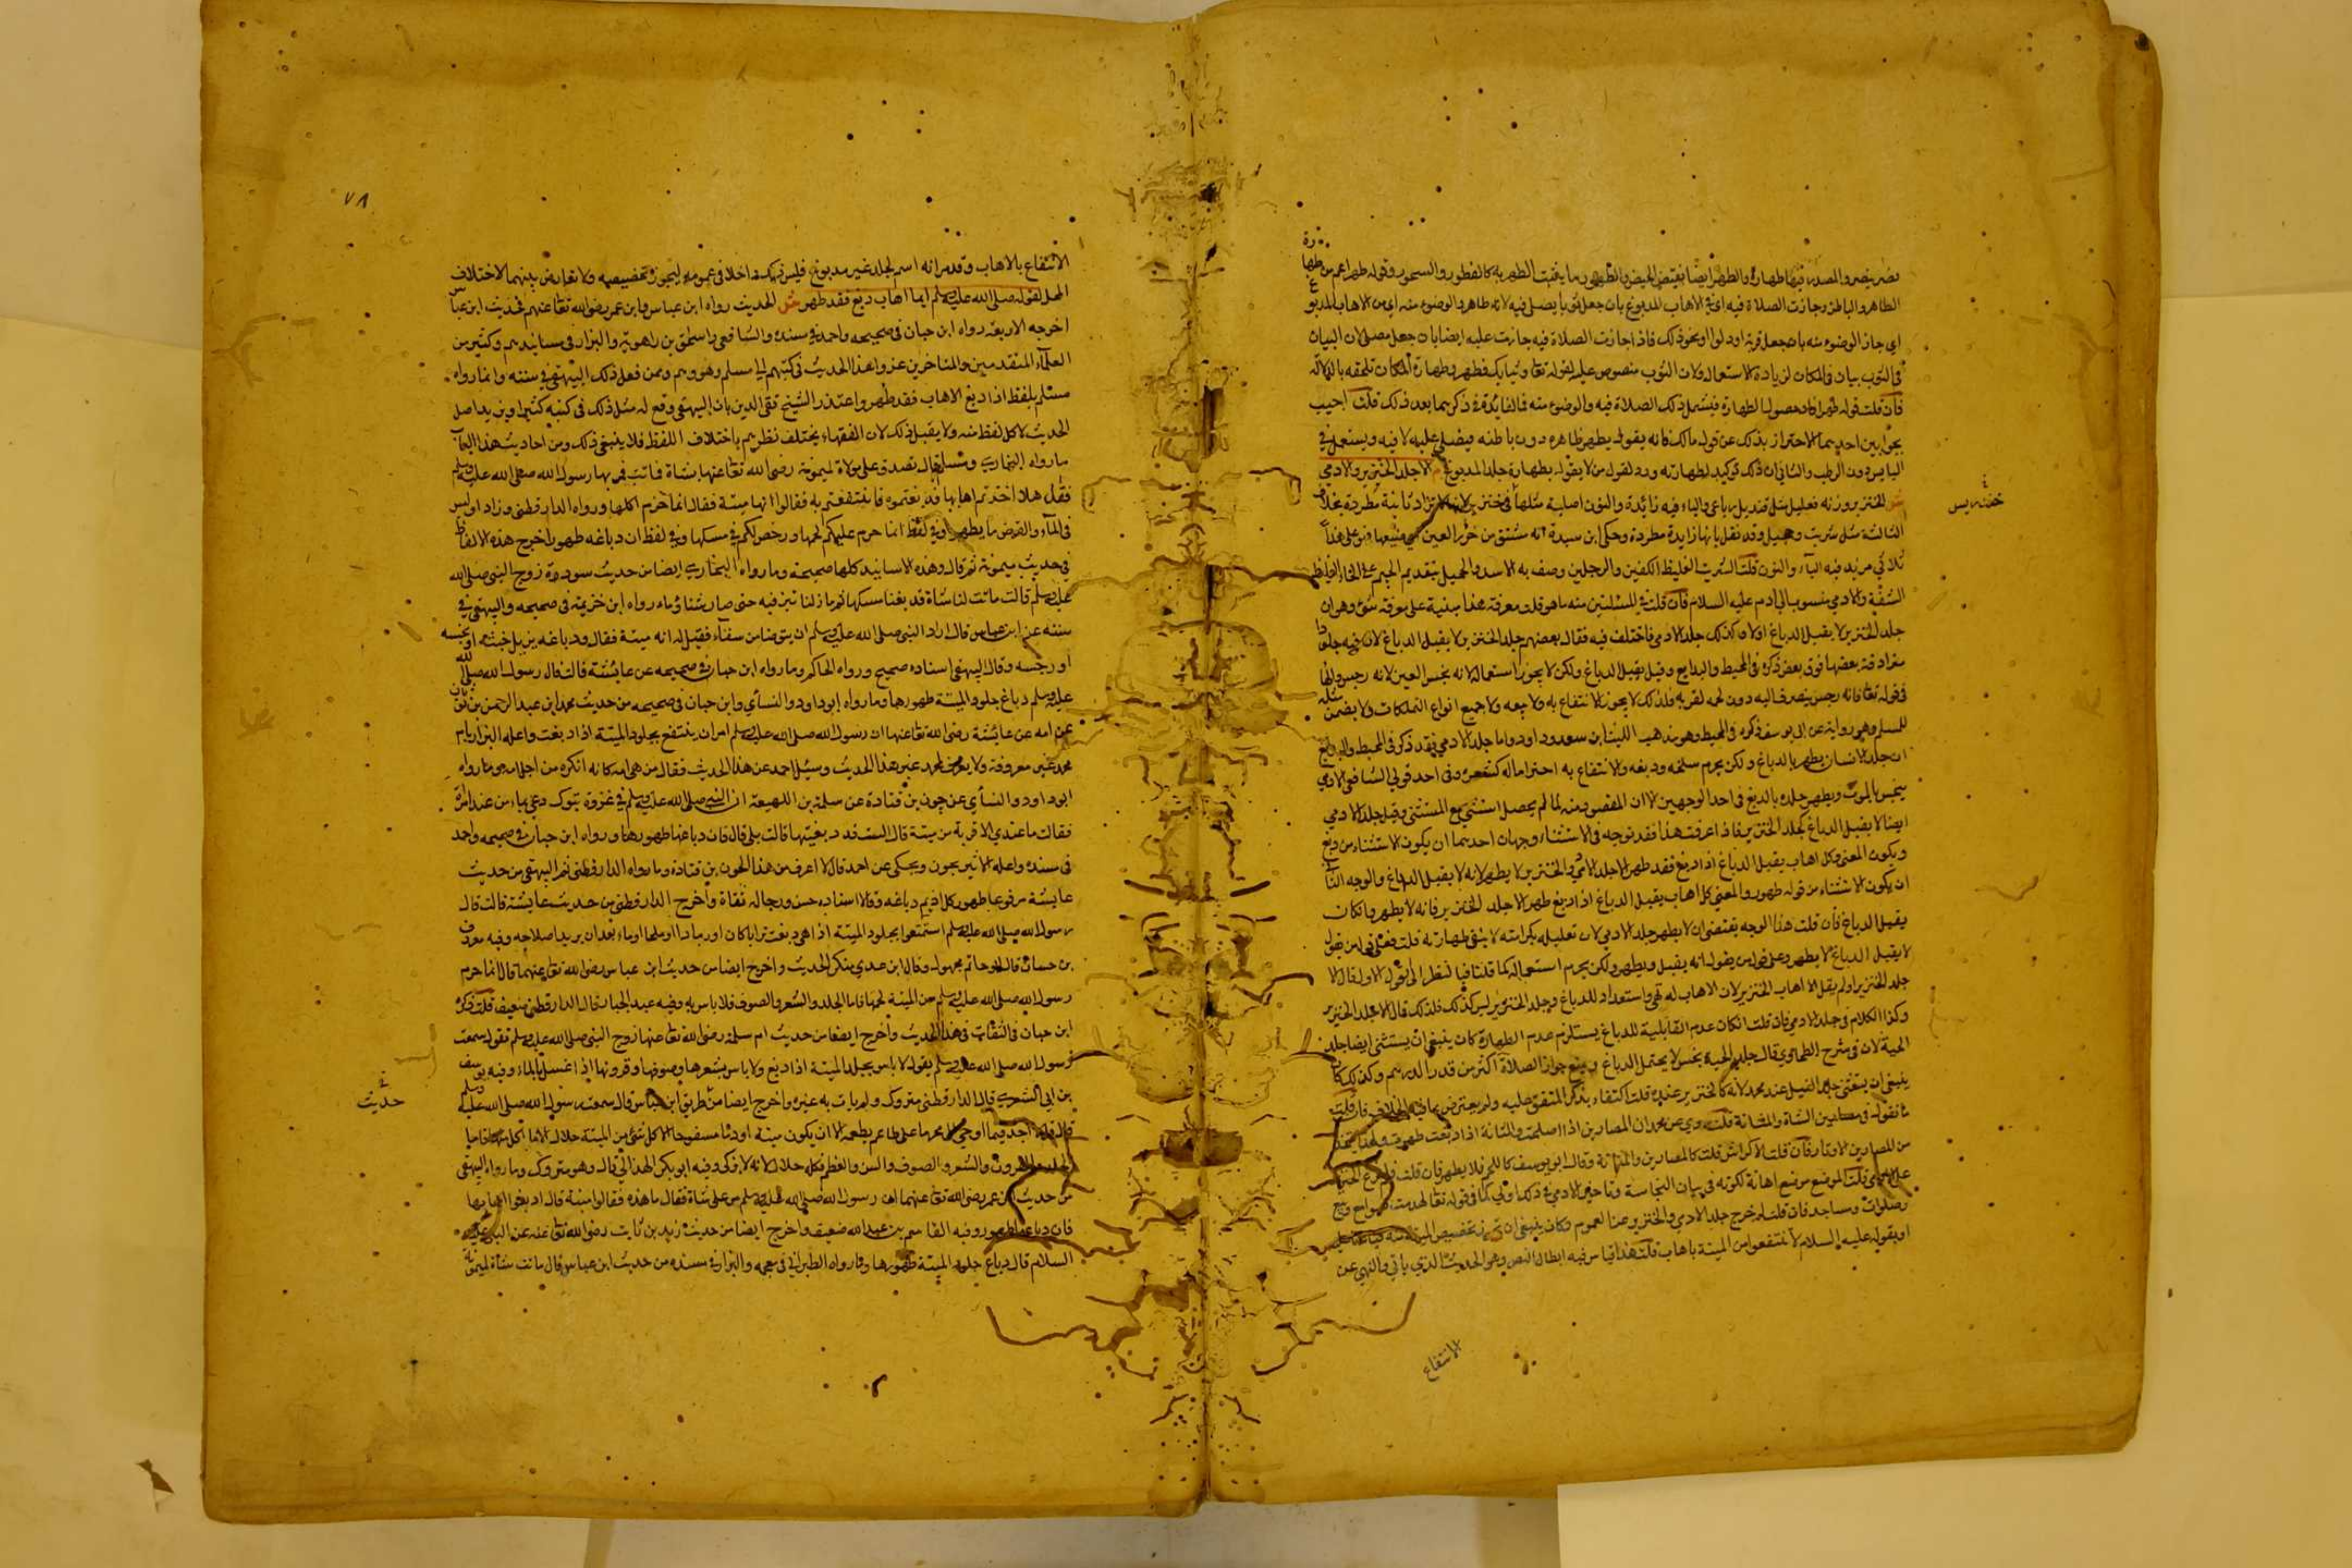 نصر ينصر والمصدر فيهما طهارة والطهر أيضا نقيض الحيض والطهور ما يتطهر به كالفطور والسحور وقوله طهر اعم من طها
رة
الظاهر والباطن وجازت الصلاة فيه اي في الاهاب المدبوغ بان جعل ثوبا يصلى فيه لانه طاهر والوضوء منه اي من الاهاب المدبوغ
اي جاز الوضوء منه بان جعل قربة او دلوا او نحو ذلك فاذا جازت الصلاة فيه جازت عليه ايضا بان جعل مصلى لان البيان
في الثوب بيان في المكان لزيادة الاستعمال ولان الثوب منصوص عليه لقوله تعالى وثيابك فطهر وطهارة المكان ملحقة بالدلالة
فان قلت قوله طهر كان محصولا لطهارة فيشمل ذلك الصلاة فيه والوضوء منه فما الفائدة في ذكرهما بعد ذلك قلت اجيب
بجوابين احدهما الاحتراز بذلك عن قول مالك فانه يقول يطهر ظاهره دون باطنه فيصلى عليه لا فيه ويستعمل في
اليابس دون الرطب والثاني ان ذلك توكيد لطهارته ورد لقول من لا يقول بطهارة جلد المدبوغ م الا جلد الخنزير والادمي
ش الخنزير وزنه فعليل مثل قنديل رباعي والياء فيه زائدة والنون اصلية مثلها في خنزير لانها لا تزاد ثانية مطردة بخلاف
الثالثة مثل شرنبث وجحنفل وقد نقل بانها زايدة مطردة وحكى ابن سيدة انه مشتق من خزر العين
ثلاثي مزيد فيه الياء والنون قلت الشرنبث الغليظ الكفين والرجلين وصف به الاسد والجحنفل بتقديم الجيم على الحاء الغليظ
الشفة والادمي منسوب الى ادم عليه السلام فان قلت
جلد الخنزير لا يقبل الدباغ اولا وكذلك جلد الادمي فاختلف فيه فقال بعضهم جلد الخنزير لا يقبل الدباغ لان فيه جلودا
مترادفة بعضها فوق بعض ذكره في المحيط والبدايع وقيل يقبل الدباغ ولكن لا يجوز استعماله لانه نجس العين لانه رجس والهاء
في قوله تعالى فانه رجس ينصرف اليه دون لحمه لقربه فلذلك لا يجوز الانتفاع به ولا بيعه ولا جميع انواع التملكات ولا يضمن متلفه
للمسلم وهو رواية عن ابي يوسف ذكره في المحيط وهو مذهب الليث وداود واما جلد الادمي فقد ذكر في المحيط والبدايع
ان جلد الانسان يطهر بالدباغ ولكن يحرم سلخه ودبغه والانتفاع به احتراما له كشعره وفي احد قولي الشافعي الادمي
ينجس بالموت ويطهر جلده بالدبغ في احد الوجهين لان المقصود منه لما لم يحصل استثني مع المستثنى وقيل جلد الادمي
ايضا لا يقبل الدباغ كجلد الخنزير فاذا عرفت هذا فقد توجه في الاستثناء وجهان احدهما ان يكون الاستثناء من دبغ
ويكون المعنى وكل اهاب يقبل الدباغ اذا دبغ فقد طهر الا جلد الادمي والخنزير لا يطهر لانه لا يقبل الدباغ والوجه الثاني
ان يكون الاستثناء من قوله طهر والمعنى كل اهاب يقبل الدباغ اذا دبغ طهر الا جلد الخنزير فانه لا يطهر وان كان
يقبل الدباغ فان قلت هذا الوجه يقتضي ان لا يطهر جلد الادمي لان تعليله بكرامته لا ينفي طهارته قلت فعلى قول من يقول
لا يقبل الدباغ لا يطهر وعلى قول من يقول انه يقبل ويطهر ولكن يحرم استعماله كما قلنا
جلد الخنزير ولم يقل الا اهاب الخنزير لان الاهاب له تهيؤ واستعداد للدباغ وجلد الخنزير ليس كذلك فلذلك قال الا جلد الخنزير
وكذا الكلام في جلد الادمي فان قلت ان كان عدم القابلية للدباغ يستلزم عدم الطهارة كان ينبغي ان يستثنى ايضا جلد
الحية لان في شرح الطحاوي قال جلد الحية نجس لا يحتمل الدباغ ويمنع جواز الصلاة اكثر من قدر الدرهم وكذلك كان
ينبغي ان يستثنى جلد الفيل عند محمد لانه كالخنزير عنده قلت اكتفاء بذكر المتفق عليه ولم يتعرض بما فيه الخلاف فان قلت
ما تقول في مصارين الشاة والمثانة قلت روي عن محمد ان المصارين اذا اصلحت والمثانة اذا دبغت طهرت
من المصارين الاوتار فان قلت الاكراش قلت كالمصارين والمثانة وقال ابو يوسف كاللحم فلا يطهر فان قلت
قلت الموضع موضع اهانة لكونه في بيان النجاسة وتاخير الادمي في ذلك اولى كما في قوله تعالى لهدمت صوامع وبيع
وصلوات ومساجد فان قلت لم خرج جلد الادمي والخنزير من العموم وكان ينبغي ان
او بقوله عليه السلام لا تنتفعوا من الميتة باهاب قلت هذا قياس فيه ابطال النص وهو الحديث الذي ياتي والنهي عن
الانتفاع
٧٨
الانتفاع بالاهاب وقد مر انه اسم لجلد غير مدبوغ فليس ذلك داخلا في عمومه ليجوز تخصيصه ولا تعارض بينهما لاختلاف
المحل لقوله صلى الله عليه وسلم ايما اهاب دبغ فقد طهر ش الحديث رواه ابن عباس وابن عمر رضي الله تعالى عنهم فحديث ابن عباس
اخرجه الاربعة رواه ابن حبان في صحيحه واحمد في مسنده والشافعي واسحق بن راهويه والبزار في مسانيدهم وكثير من
العلماء المتقدمين والمتاخرين عزوا هذا الحديث في كتبهم الى مسلم وهو وهم وممن فعل ذلك البيهقي في سننه وانما رواه
مسلم بلفظ اذا دبغ الاهاب فقد طهر واعتذر الشيخ تقي الدين بان البيهقي وقع له مثل ذلك في كتبه كثيرا ويريد اصل
الحديث لا كل لفظ منه ولا يقبل ذلك لان الفقهاء يختلف نظرهم باختلاف اللفظ فلا ينبغي ذلك ومن احاديث هذا الباب
ما رواه البخاري ومسلم قال تصدق على مولاة لميمونة رضي الله تعالى عنها بشاة فماتت فمر بها رسول الله صلى الله عليه وسلم
فقال هلا اخذتم اهابها فدبغتموه فانتفعتم به فقالوا انها ميتة فقال انما حرم اكلها ورواه الدارقطني وزاد اوليس
في الماء والقرظ ما يطهرها وفي لفظ انما حرم عليكم لحمها ورخص لكم في مسكها وفي لفظ ان دباغه طهور اخرج هذه الالفاظ
في حديث ميمونة ثم قال وهذه الاسانيد كلها صحيحة وما رواه البخاري ايضا من حديث سودة زوج النبي صلى الله
عليه وسلم قالت ماتت لنا شاة فدبغنا مسكها ثم ما زلنا ننبذ فيه حتى صار شنا وما رواه ابن خزيمة في صحيحه والبيهقي في
سننه عن ابن عباس قال اراد النبي صلى الله عليه وسلم ان يتوضا من سقاء فقيل له انه ميتة فقال ودباغه يزيل خبثه او نجسه
او رجسه وقال البيهقي اسناده صحيح ورواه الحاكم وما رواه ابن حبان في صحيحه عن عايشة قالت قال رسول الله صلى الله
عليه وسلم دباغ جلود الميتة طهورها وما رواه ابو داود والنسأي وابن حبان في صحيحه من حديث محمد بن عبد الرحمن بن ثوبان
عن امه عن عائشة رضي الله تعالى عنها ان رسول الله صلى الله عليه وسلم امر ان ينتفع بجلود الميتة اذا دبغت واعله
محمد غير معروفة ولا يعرف لمحمد غير هذا الحديث وسئل احمد عن هذا الحديث فقال من هي امه كانه انكره من اجل امه وما رواه
ابو داود والنسأي عن جون بن قتادة عن سلمة بن ان النبي صلى الله عليه وسلم في غزوة تبوك دعى بماء من عند امراة
فقالت ما عندي الا قربة من ميتة قال اليست قد دبغتيها قالت بلى قال فان دباغها طهورها ورواه ابن حبان في صحيحه واحمد
في مسنده واعله الاثير بجون ويحكى عن احمد قال لا اعرف من هذا الجون بن قتادة وما رواه الدارقطني ثم البيهقي من حديث
عايشة مرفوعا طهور كل اديم دباغه وقالا اسناده حسن ورجاله ثقاة واخرج الدارقطني من حديث عايشة قالت قال
رسول الله صلى الله عليه وسلم استمتعوا بجلود الميتة اذا هي دبغت ترابا كان او رمادا او ملحا او ماء بعد ان يريد صلاحه وفيه معروف
بن حسان قال ابو حاتم مجهول وقال ابن عدي منكر الحديث واخرج ايضا من حديث ابن عباس رضي الله تعالى عنهما قال انما حرم
رسول الله صلى الله عليه وسلم من الميتة لحمها فاما الجلد والشعر والصوف فلا باس به وفيه عبد الجبار قال الدارقطني ضعيف قلت ذكره
ابن حبان في الثقات في هذا الحديث واخرج ايضا من حديث ام سلمة رضي الله تعالى عنها زوج النبي صلى الله عليه وسلم تقول سمعت
رسول الله صلى الله عليه وسلم يقول لا باس بجلد الميتة اذا دبغ ولا باس بشعرها وصوفها وقرونها اذا غسل بالماء وفيه يوسف
بن ابي السفر قال الدارقطني متروك ولم يات به غيره واخرج ايضا من طريق ابن عباس قال سمعت رسول الله صلى الله عليه وسلم
قال قل لا اجد فيما اوحي الي محرما على طاعم يطعمه الا ان يكون ميتة او دما مسفوحا الا كل شيء من الميتة حلال الا ما اكل منها فاما
الجلد والقرون والشعر والصوف والسن والعظم فكله حلال لانه لا يذكى وفيه ابو بكر الهذلي قال وهو متروك وما رواه البيهقي
من حديث ابن عمر رضي الله تعالى عنهما ان رسول الله صلى الله عليه وسلم مر على شاة فقال ما هذه فقالوا ميتة قال ادبغوا اهابها
فان دباغها طهور وفيه القاسم بن عبد الله ضعيف واخرج ايضا من حديث زيد بن ثابت رضي الله تعالى عنه عن النبي عليه
السلام قال دباغ جلود الميتة طهورها وما رواه الطبراني في معجمه والبزار في مسنده من حديث ابن عباس قال ماتت شاة لميمونة
حديث